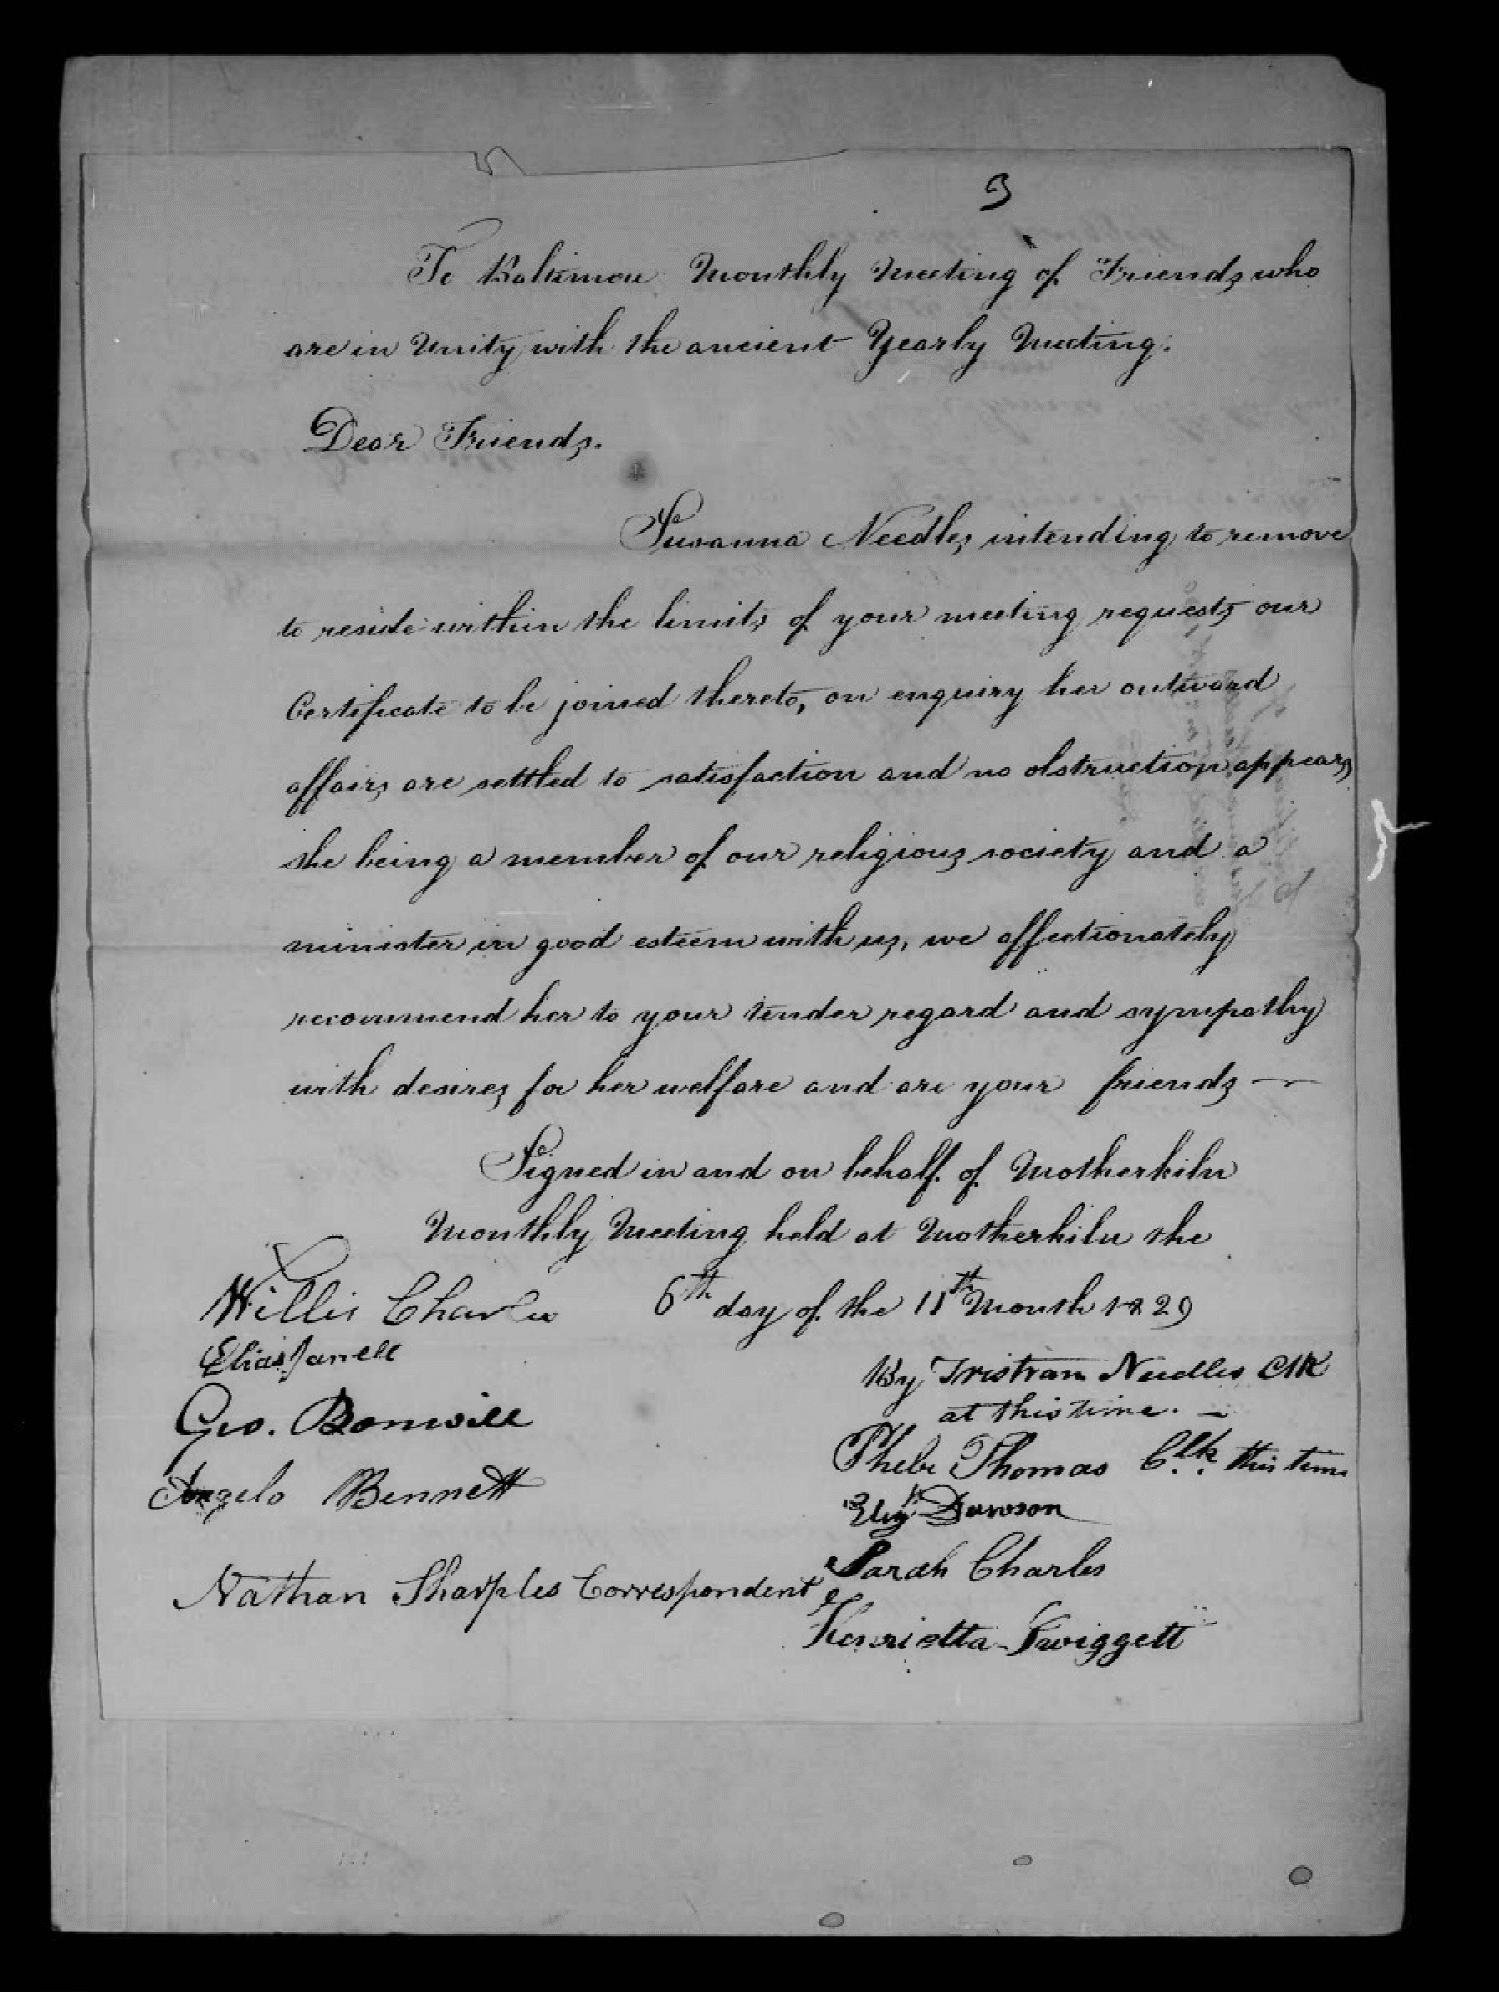 3
To Baltimore Monthly Meeting of Friends who
are in Unity with the ancient Yearly Meeting.
Dear Friends.
Susanna Needles intending to remove
to reside within the limits of your meeting requests our
Certificate to be joined thereto, on enquiry her outward
affairs are settled to satisfaction and no obstruction appears
she being a member of our religious society and a
minister in good esteem with us, we affectionately
recommend her to your tender regard and sympathy
with desires for her welfare and are your friends —
Signed in and on behalf of Motherkiln
Monthly Meeting held at Motherkiln the
6th day of the 11th Month 1829
Willis Charles
Elias Janell
Geo. Bonwill
Angelo Bennett
Nathan Sharples Correspondent
By Tristram Needles Clk
at this time. —
Phebe Thomas Clk. this time
Elizh Dawson
Sarah Charles
Henrietta Twiggett